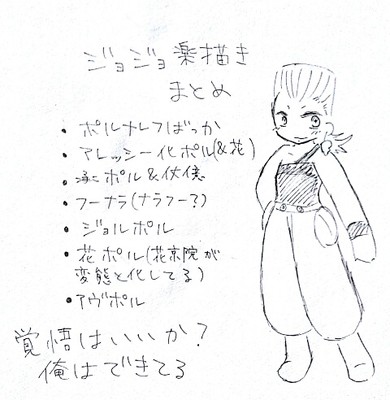 ジョジョ楽描き
まとめ
• ポルナレフばっか
• アレッシー化ポル(&花)
• 承ポル&仗億
• フーナラ(ナラフー?)
• ジョルポル
• 花ポル(花京院が
変態と化してる)
• アヴポル
覚悟はいいか?
俺はできてる